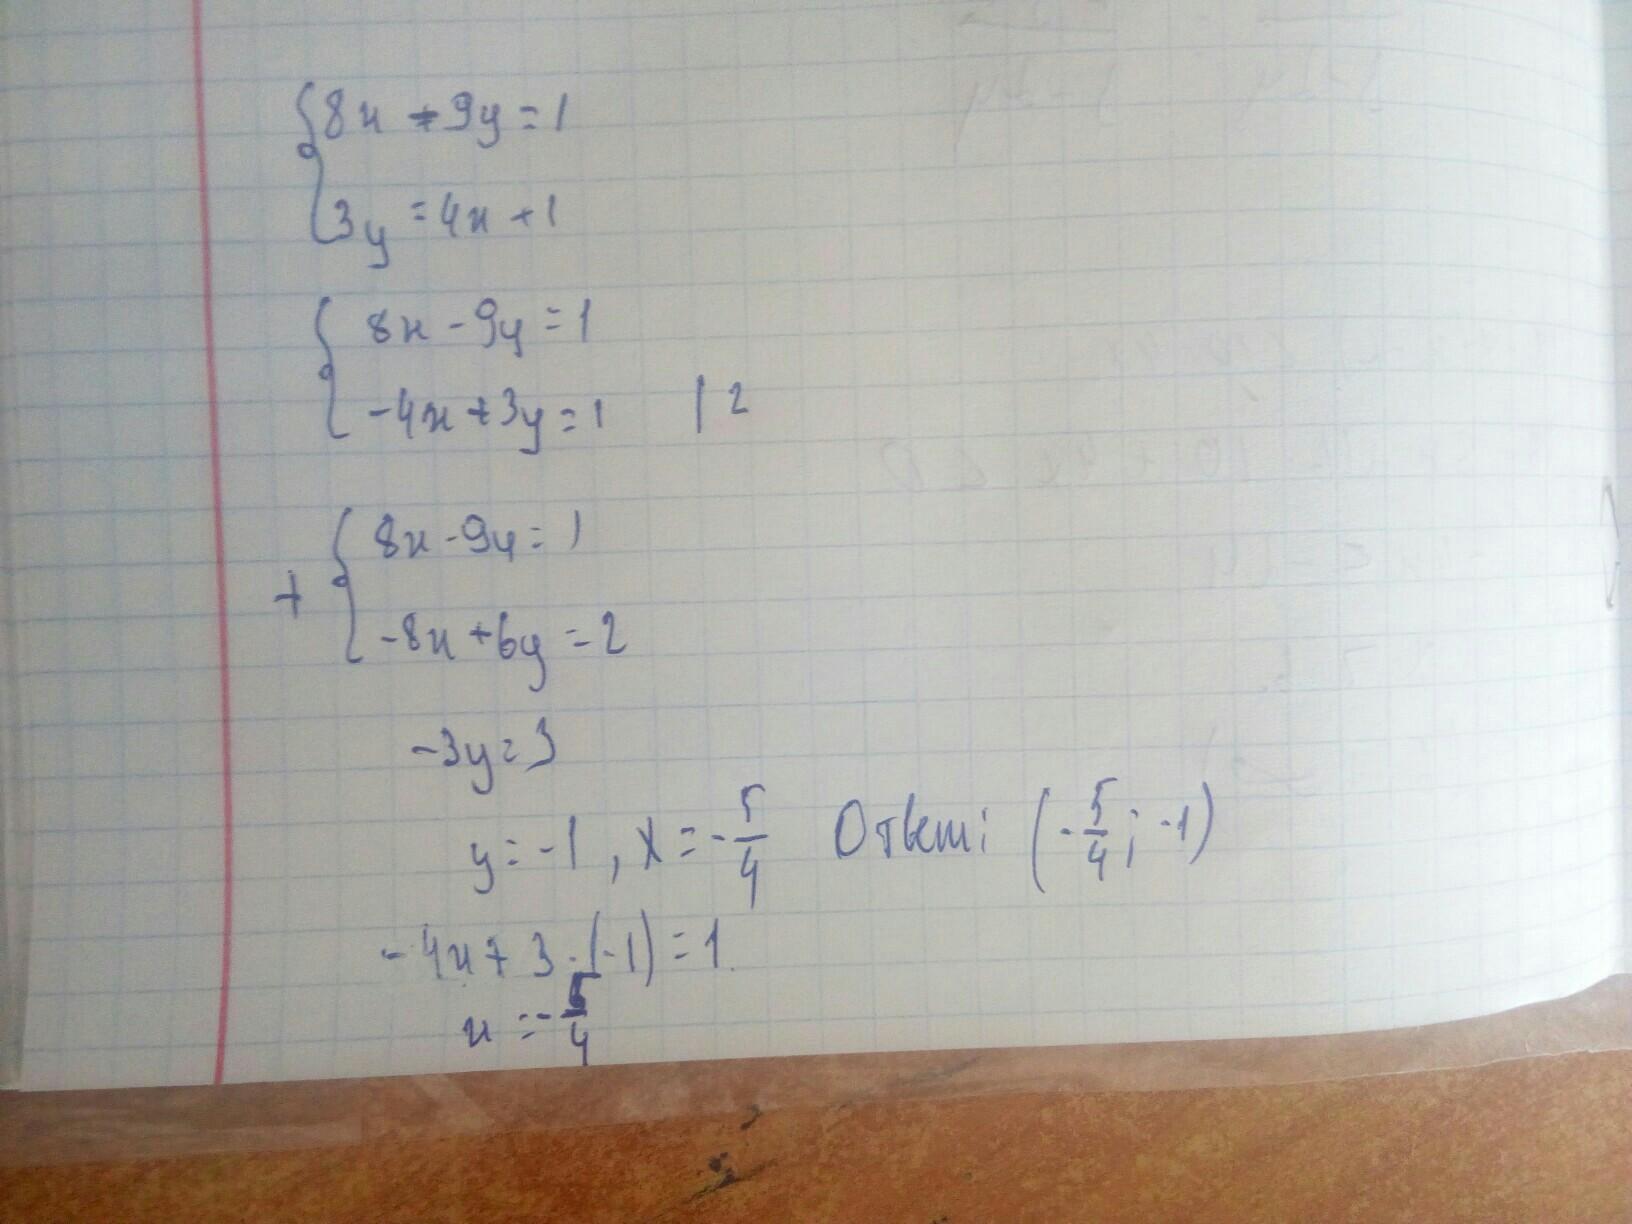 8x + 9y = 1
3y = 4x + 1
8x - 9y = 1
-4x + 3y = 1 | 2
8x - 9y = 1
+
-8x + 6y = 2
-3y = 3
y = -1, x = -5/4 Ответ: (-5/4; -1)
-4x + 3 · (-1) = 1.
x = -5/4